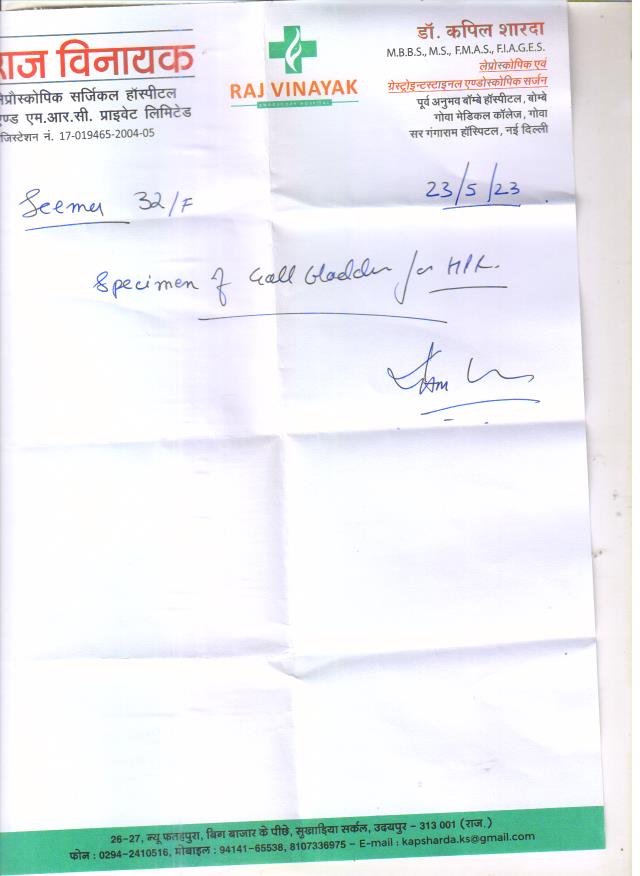 राज विनायक
लेप्रौस्कोपिक सर्जिकल हॉस्पीटल
एण्ड एम.आर.सी. प्राइवेट लिमिटेड
जिस्टेशन नं. 17-019465-2004-05
RAJ VINAYAK
डॉ. कपिल शारदा
M.B.B.S., M.S., F.M.A.S., F.I.A.G.E.S.
लेप्रोस्कोपिक एवं
गेस्ट्रोइन्टस्टाइनल एण्डोस्कोपिक सर्जन
पूर्व अनुभव बॉम्बे हॉस्पीटल, बोम्बे
गोवा मेडिकल कॉलेज, गोवा
सर गंगाराम हॉस्पिटल, नई दिल्ली
23/5/23
Seema 32/F
Specimen of Gall bladder for HPR.
26-27, न्यू फतहपुरा, बिग बाजार के पीछे, सुखाड़िया सर्कल, उदयपुर - 313 001 (राज.)
फोन : 0294-2410516, मोबाइल : 94141-65538, 8107336975 - E-mail : kapsharda.ks@gmail.com